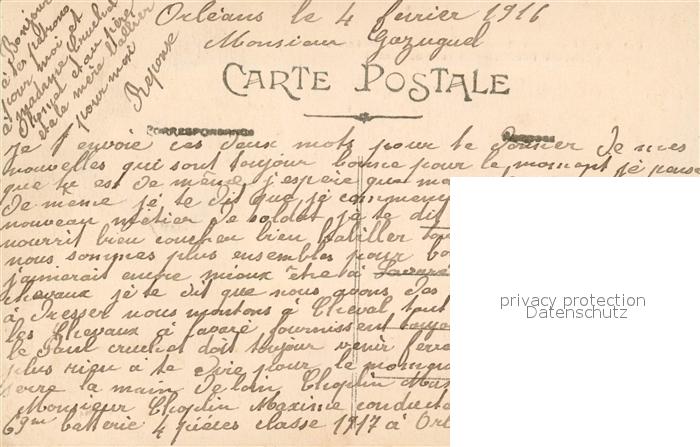 Orléans le 4 fevrier 1916
Monsieur
CARTE POSTALE
Bonjour
à tes patrons
pour moi et
à madame Cruchet
et à la mère
pour moi
Réponse
CORRESPONDANCE
Je t'envoie ces deux mots pour te donner de mes
nouvelles qui sont toujour bonne pour le moment je pense
que tu est de même, j'espère que
de même je te dit que je
nouveau métier de soldat je te dit
nourrit bien coucher bien habiller
nous sommes plus ensembles pour
j'aimerait encre mieux être à
chevaux je te dit que nous avons des
à dresser nous montons à cheval tout
les chevaux à Lavaré fournissent
le Paul cruchet doit toujour venir
plus rien a te dire pour le
serre la main de loin Choplin
Monsieur Choplin Maxime
69me batterie 4 pièces classe 1917 à
privacy protection
Datenschutz